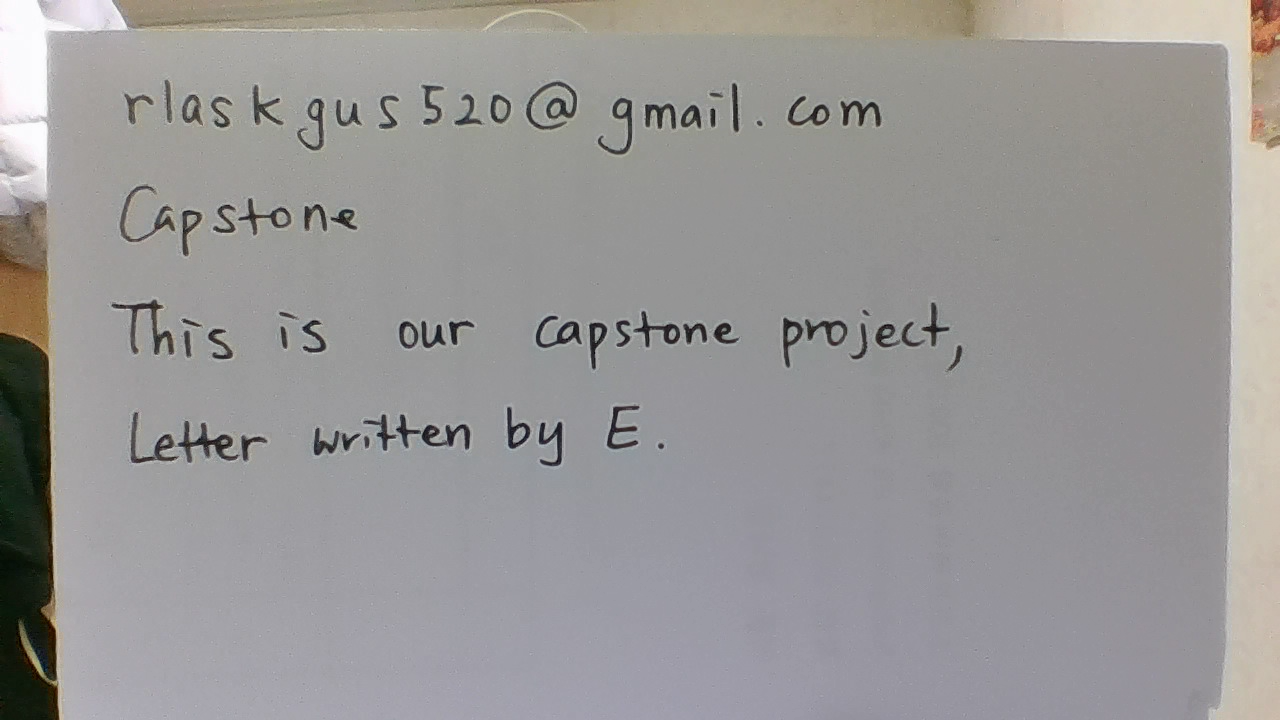 rlaskgus520@gmail.com
Capstone
This is our capstone project,
Letter written by E.